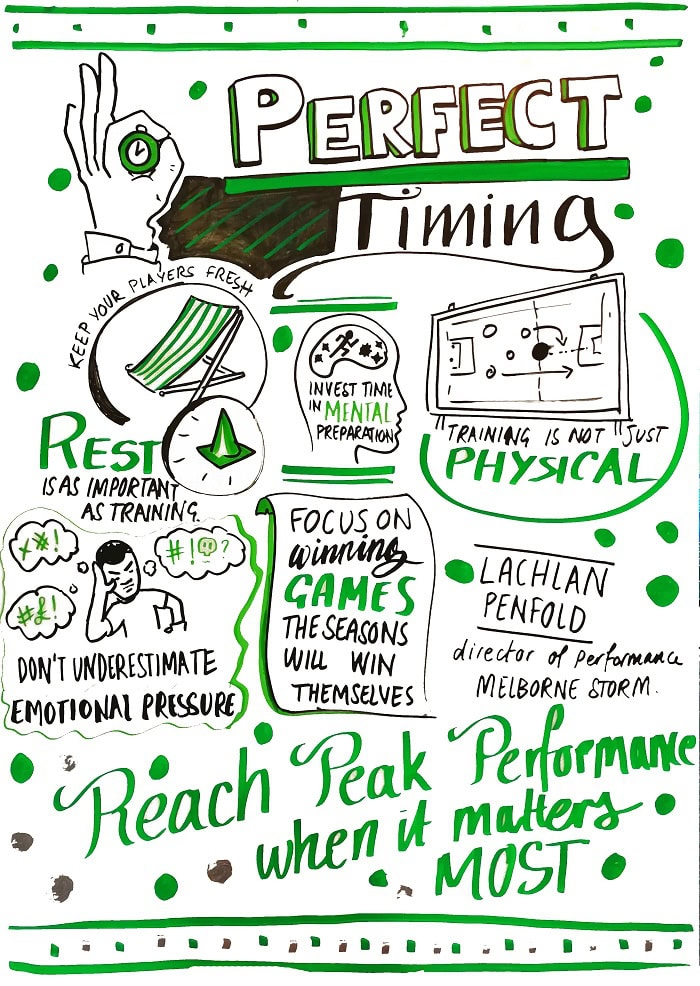 PERFECT
Timing
KEEP YOUR PLAYERS FRESH
REST
IS AS IMPORTANT
AS TRAINING.
INVEST TIME
IN MENTAL
PREPARATION
TRAINING IS NOT JUST
PHYSICAL
X*!
#!?
#£!
DON'T UNDERESTIMATE
EMOTIONAL PRESSURE
FOCUS ON
winning
GAMES
THE SEASONS
WILL WIN
THEMSELVES
LACHLAN
PENFOLD
director of performance
MELBORNE STORM.
Reach Peak Performance
when it matters
MOST